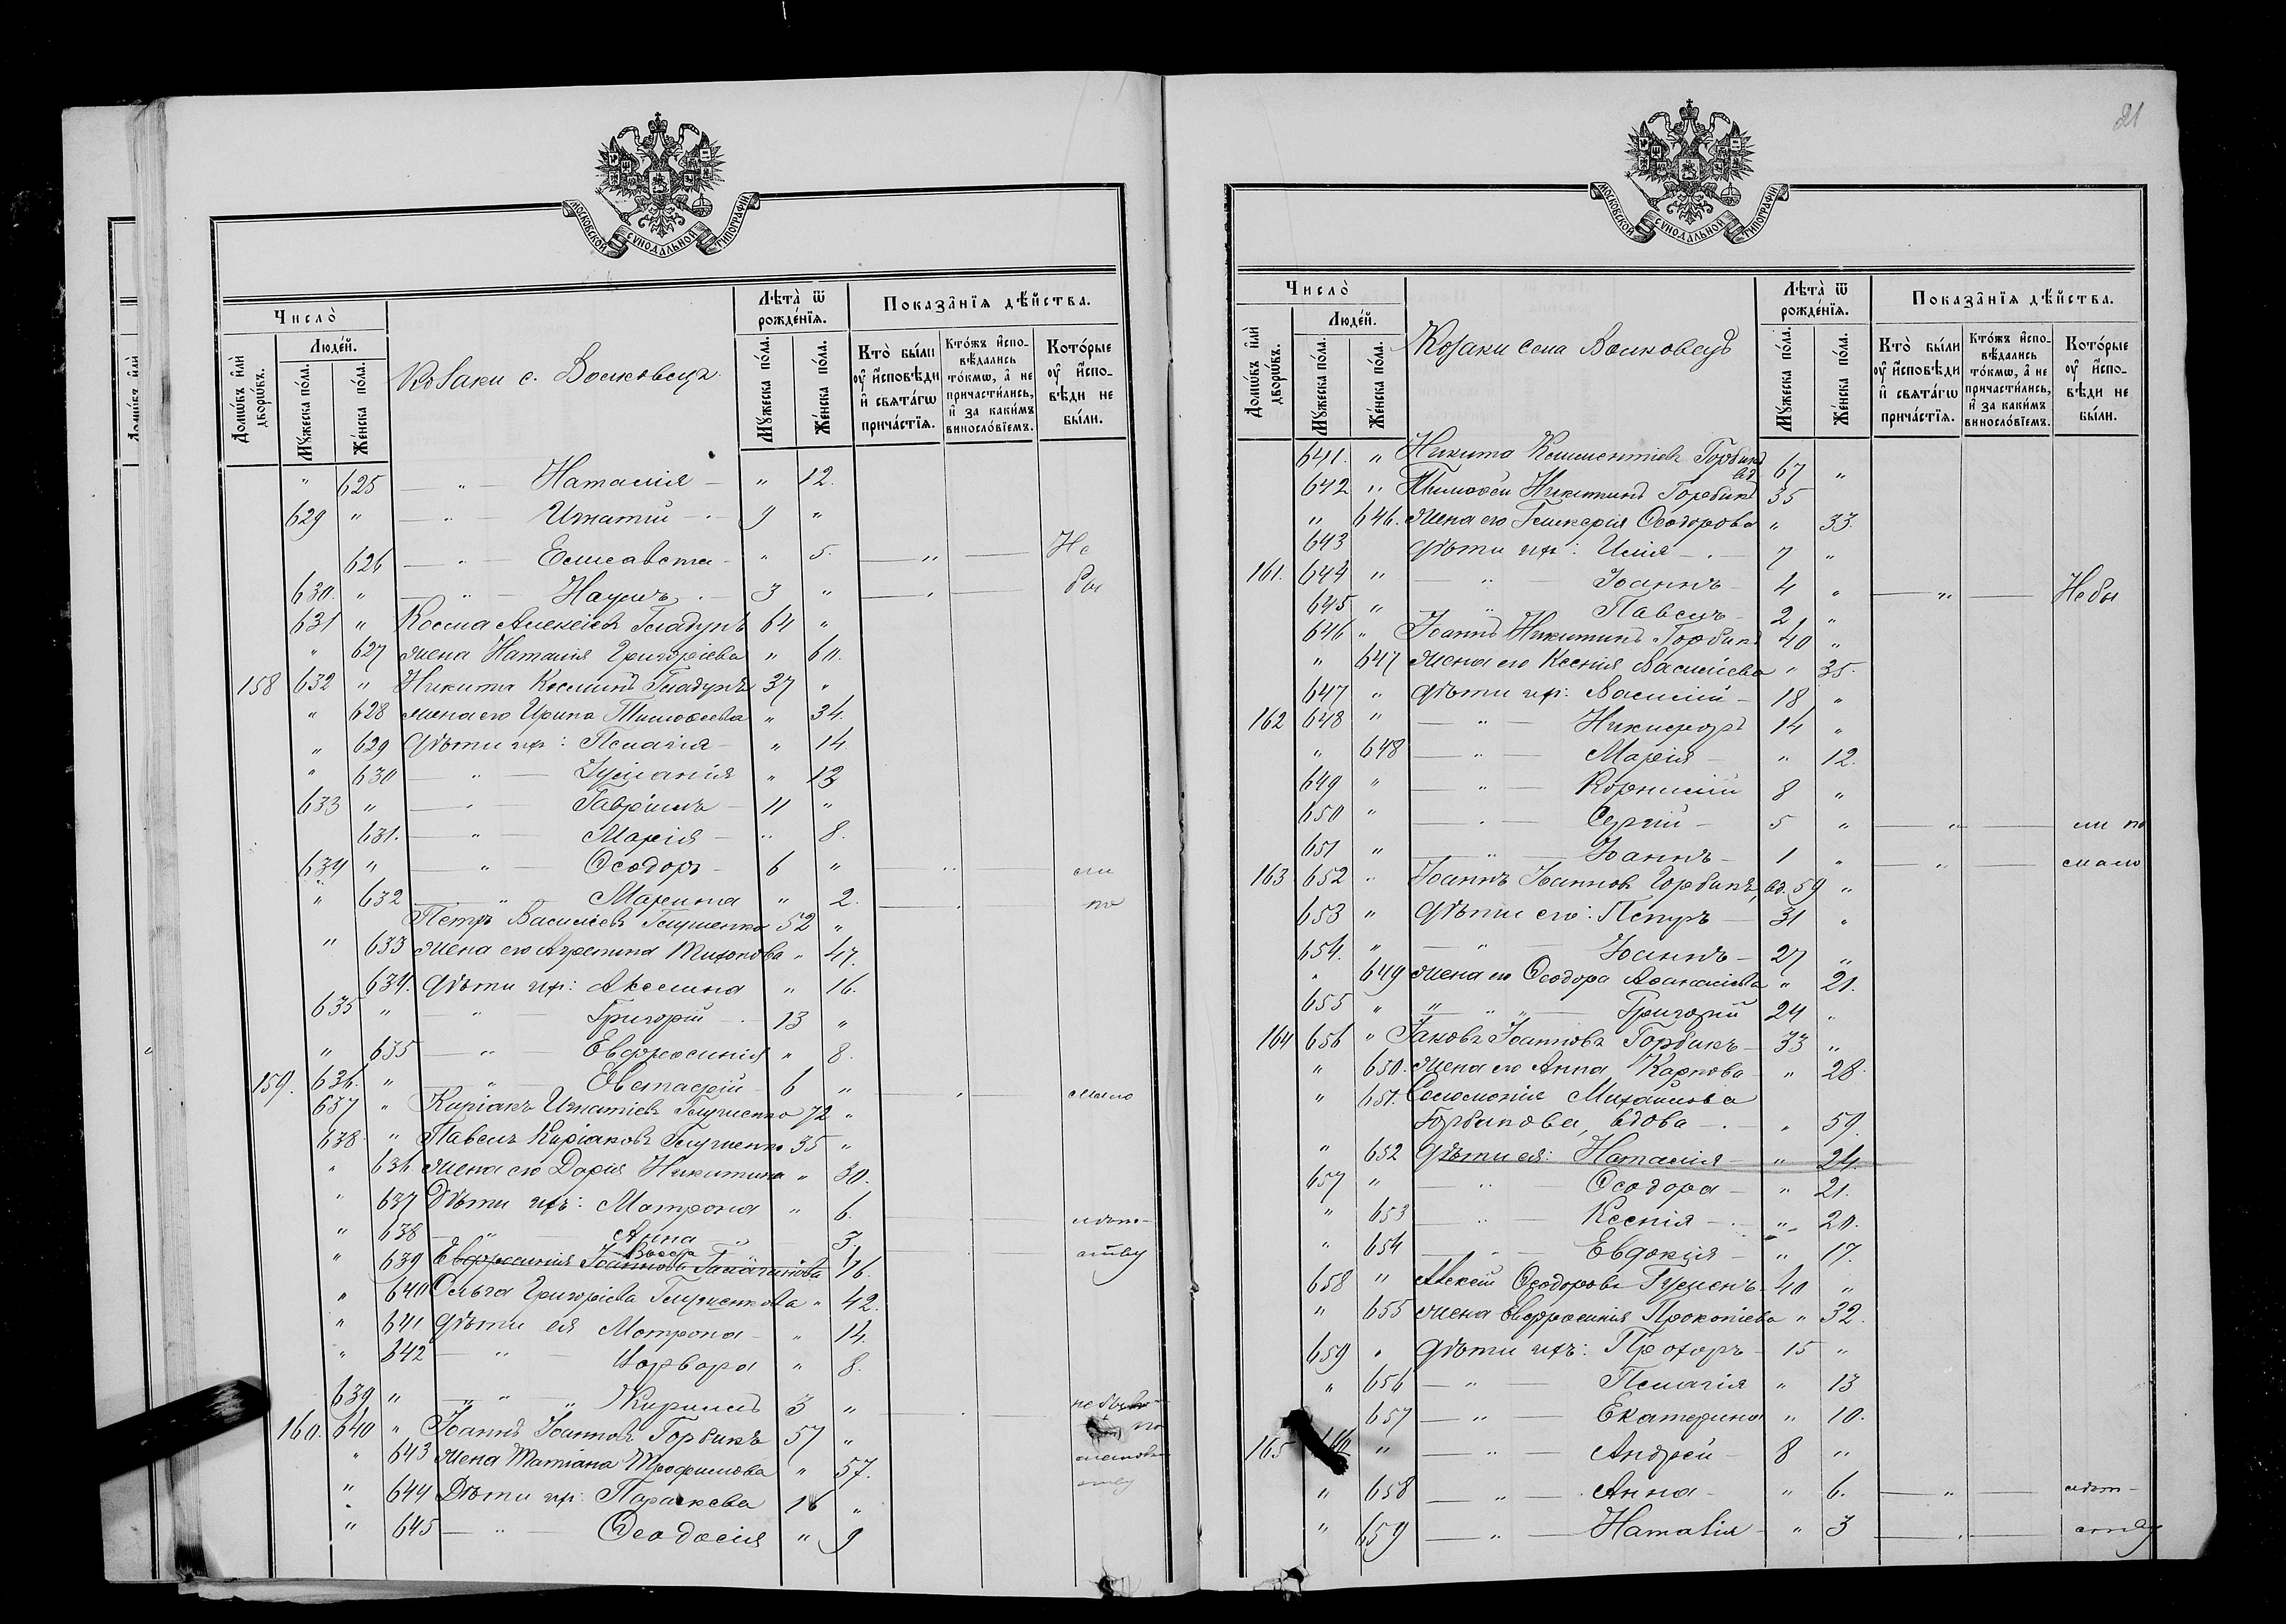 МОСКОВСКОЙ СУНОДАЛЬНОЙ ТИПОГРАФІИ
Число̀
Домѡ́въ и҆лѝ дворѡ́въ.
Людей.
Мꙋжеска по́ла.
Же́нска по́ла.
Козаки с. Волковецъ.
Лѣта̀ ѿ рожде́нїѧ.
Мꙋжеска по́ла.
Же́нска по́ла.
Показа̂нїѧ дѣ́йства.
Кто̀ бы́ли оу҆ и҆сповѣди и҆ свѧта́гѡ прича́стїѧ.
Кто́жъ и҆спо-вѣдались то́кмѡ, а҆ не причасти́лись, и҆ за каки́мъ винослові́емъ.
Кото́рые оу҆ и҆спо-вѣди не бы́ли.
" 625 — " — Наталія — " 12.
629 " — " — Игнатій — 9 "
626 — " — Елисавета — " 5. — " — Не
630. " — " — Наумъ — 3 " — " — бы
631 " Косма Алексіевъ Гладунъ 64 "
" 627 жена Наталія Григоріева " 60.
158 632 " Никита Косминъ Гладунъ 37 "
" 628 жена его Ирина Тимоѳеева " 34.
" 629 Дѣти ихъ: Пелагія — " 14.
" 630 — " — Іуліанія " 12
633 " — " — Гавріилъ — 11 "
631. — " — Марія — " 8.
634 " — " — Ѳеодоръ — 6 " — " — ли
" 632 — " — Марина " 2. — " — по
Петръ Василіевъ Глущенко 52 "
" 633 жена его Агрепина Тихонова " 47.
634. Дѣти ихъ: Акелина " 16.
635 " — " — Григорій — 13 "
" 635 — " — Евфросинія " 8.
159. 636. " — " — Евстафій — 6 " — " — мало
637 " Киріакъ Игнатіевъ Глущенко 72 "
638. " Павелъ Киріаковъ Глущенко 35 "
" 636 жена его Дарія Никитина " 30.
" 637 Дѣти ихъ: Матрона " 6. лѣт-
" 638 — " — Анна " 3. ству
" 639 Евфросинія Іоаннова 16.
" 640 Ольга Григоріева Глущенкова " 42.
" 641 Дѣти ея Матрона — " 14.
" 642 — " — Варвара " 8.
639 " — " — Кириллъ 3 "
160. 640 " Іоаннъ Іоанновъ Горбикъ 57 " по
" 643 жена Татіана Трофимова " 57.
" 644 Дѣти ихъ: Параскева 16 " ству
" 645 — " — Ѳеодосія " 9
21
МОСКОВСКОЙ СУНОДАЛЬНОЙ ТИПОГРАФІИ
Число̀
Домѡ́въ и҆лѝ дворѡ́въ.
Людей.
Мꙋжеска по́ла.
Же́нска по́ла.
Козаки села Волковецъ
Лѣта̀ ѿ рожде́нїѧ.
Мꙋжеска по́ла.
Же́нска по́ла.
Показа̂нїѧ дѣ́йства.
Кто̀ бы́ли оу҆ и҆сповѣди и҆ свѧта́гѡ прича́стїѧ.
Кто́жъ и҆спо-вѣдались то́кмѡ, а҆ не причасти́лись, и҆ за каки́мъ винослові́емъ.
Кото́рые оу҆ и҆спо-вѣди не бы́ли.
641. " Никита Климентіевъ Горбикъ вд. 67 "
642 " Тимоѳей Никитинъ Горбикъ 35
" 646. жена его Гликерія Ѳеодорова " 33.
643 Дѣти ихъ: Илія — 7 "
161. 644 " — " — Іоаннъ — 4 " — " — Небы
645 " — " — Павелъ — 2 "
646 " Іоаннъ Никитинъ Горбикъ 40 "
" 647 жена его Ксенія Василіева " 35.
647 " Дѣти ихъ: Василій — 18 "
162 648 " — " — Никифоръ 14 "
" 648 — " — Марія — " 12.
649 " — " — Корнилій 8 "
650 " — " — Сергій — 5 " — " — ли по
651 " — " — Іоаннъ — 1 " — " — мало
163 652 " Іоаннъ Іоанновъ Горбикъ, вд. 59 "
653 " Дѣти его: Петръ — 31 "
654. " — " — Іоаннъ — 27 "
" 649 жена его Ѳеодора Аѳанасіева " 21.
655 " " — " — Григорій 24 "
164 656 " Іаковъ Іоанновъ Горбикъ — 33 "
" 650. жена его Анна Карпова — " 28.
" 651. Соломонія Михайлова
Горбикова, вдова — " 59.
" 652 Дѣти ея: Наталія — " 24.
657 " — " — Ѳеодора — " 21.
" 653 — " — Ксенія — " 20.
" 654 — " — Евдокія — " 17.
658 " Алексій Ѳеодоровъ 40 "
" 655 жена Евфросинія Прокопіева " 32.
659 " Дѣти ихъ: Прохоръ — 15 "
" 656 — " — Пелагія " 13
657 — " — Екатерина " 10.
165 " — " — Андрей — 8 "
" 658 — " — Анна — " 6. — " — лѣт-
" 659 — " — Наталія — " 3 — " — ству